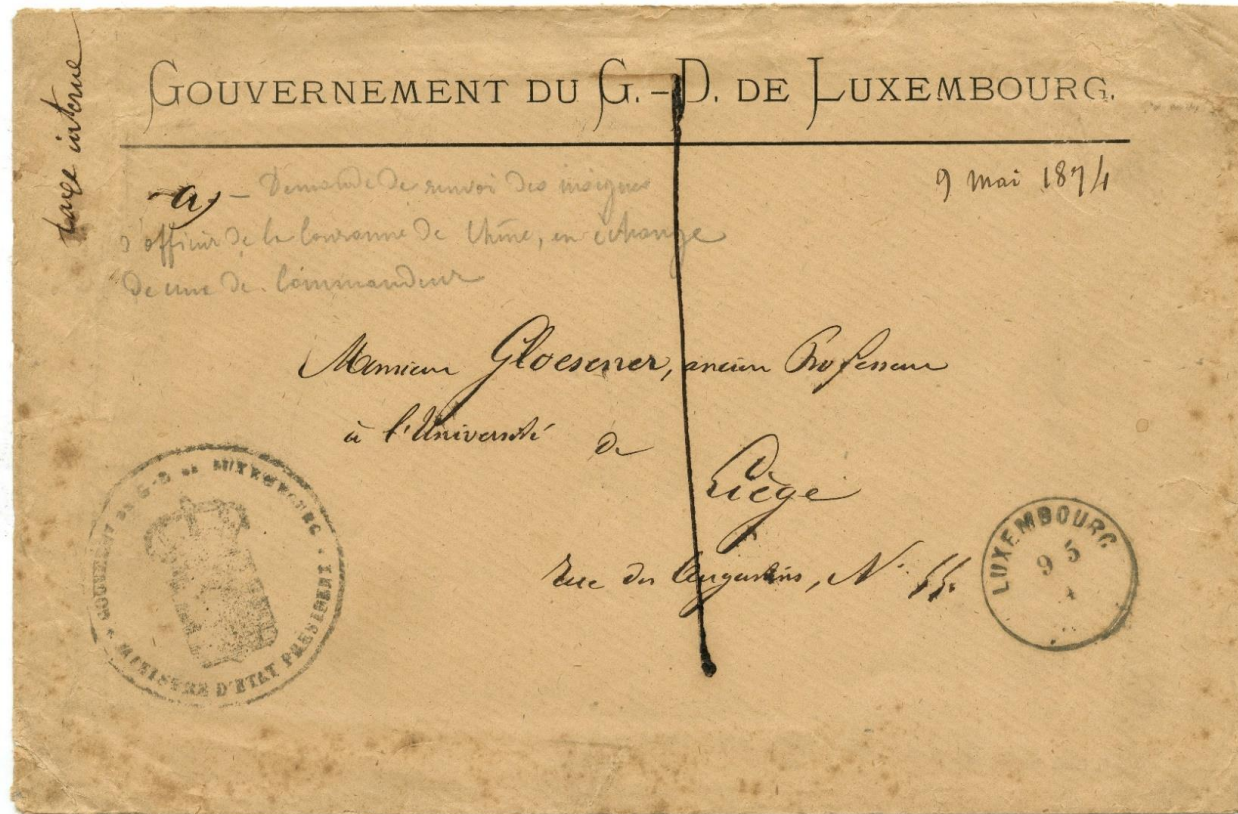 taxe interne
GOUVERNEMENT DU G.-D. DE LUXEMBOURG.
9 mai 1874
a) – Demande de renvoi des insignes
d'officier de la Couronne de Chêne, en échange
de ceux de Commandeur
Monsieur Gloesener, ancien Professeur
à l'Université de
Liège
rue des Augustins, N°
GOUVERNT DU G-D DE LUXEMBOURG
MINISTRE D'ETAT PRESIDENT
LUXEMBOURG
9 5